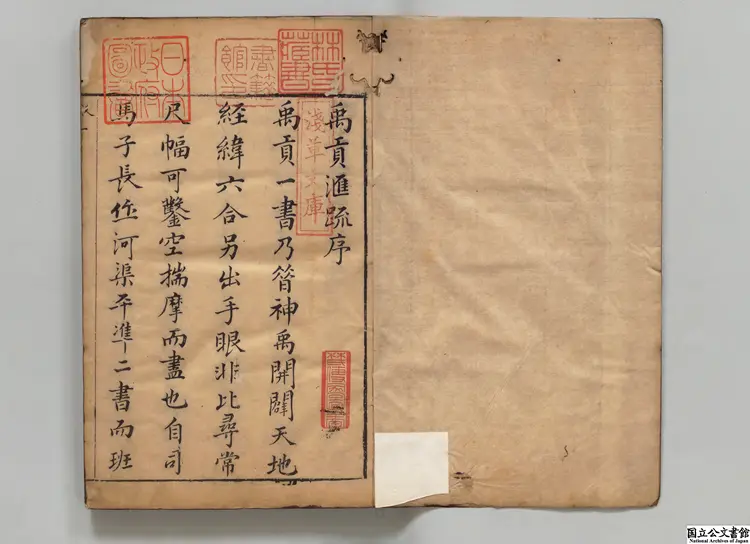 林氏藏書
書籍館印
日本政府圖書
淺草文庫
禹貢滙䟽序
禹貢一書乃神禹開闢天地
經緯六合另出手眼非比尋常
尺幅可鑿空揣摩而盡也自司
馬子長作河渠平準二書而班
国立公文書館
National Archives of Japan